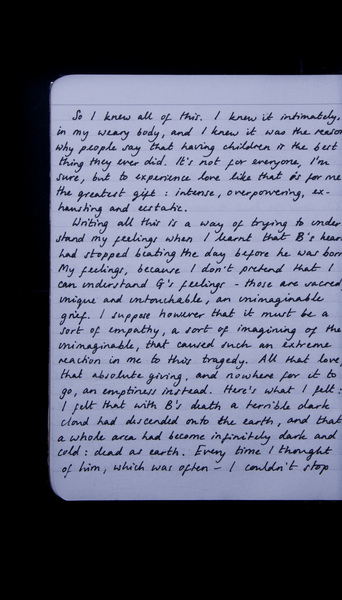 So I knew all of this. I knew it intimately,
in my weary body, and I knew it was the reason
why people say that having children is the best
thing they ever did. It's not for everyone, I'm
sure, but to experience love like that is for me
the greatest gift : intense, overpowering, ex-
hausting and ecstatic.
Writing all this is a way of trying to under
stand my feelings when I learnt that B's hear
had stopped beating the day before he was born
My feelings, because I don't pretend that I
can understand G's feelings - those are sacred
unique and untouchable, an unimaginable
grief. I suppose however that it must be a
sort of empathy, a sort of imagining of the
unimaginable, that caused such an extreme
reaction in me to this tragedy. All that love,
that absolute giving, and nowhere for it to
go, an emptiness instead. Here's what I felt:
I felt that with B's death a terrible dark
cloud had descended onto the earth, and that
a whole area had become infinitely dark and
cold: dead as earth. Every time I thought
of him, which was often - I couldn't stop